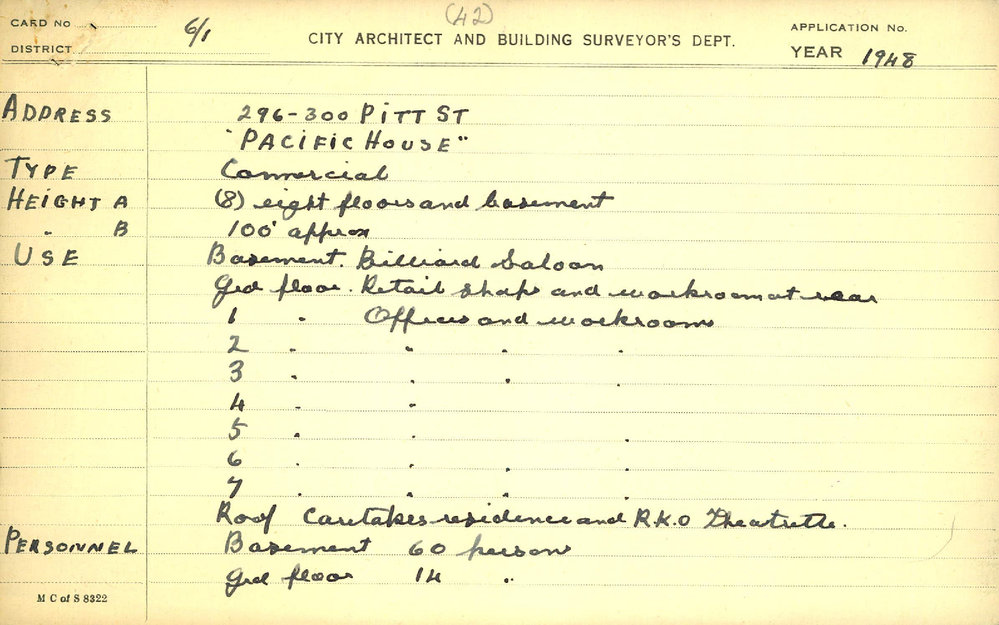 (42)
CARD No 6/1 CITY ARCHITECT AND BUILDING SURVEYOR'S DEPT. APPLICATION No.
DISTRICT YEAR 1948
ADDRESS 296-300 PITT ST
"PACIFIC HOUSE"
TYPE Commercial
HEIGHT A (8) eight floors and basement
" B 100' approx
USE Basement. Billiard Saloon
Grd floor. Retail shops and workroom at rear
1 " Offices and workrooms
2 " " " "
3 " " " "
4 " "
5 " " "
6 " " " "
7 " " " "
Roof Caretakers residence and R.K.O Theatrette.
PERSONNEL Basement 60 persons
Grd floor 14 "
M C of S 8322